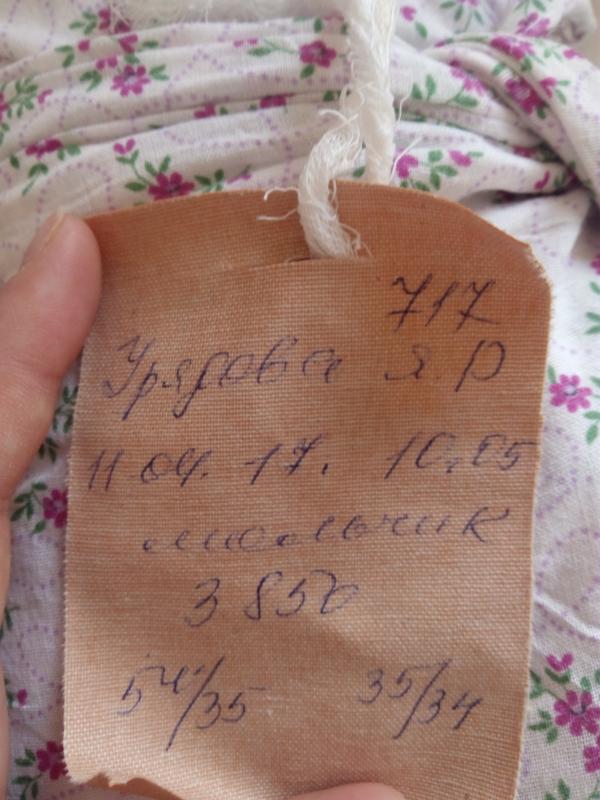 717
Урядова Я.В
11 04. 17. 10,05
мальчик
3 850
54/35 35/34